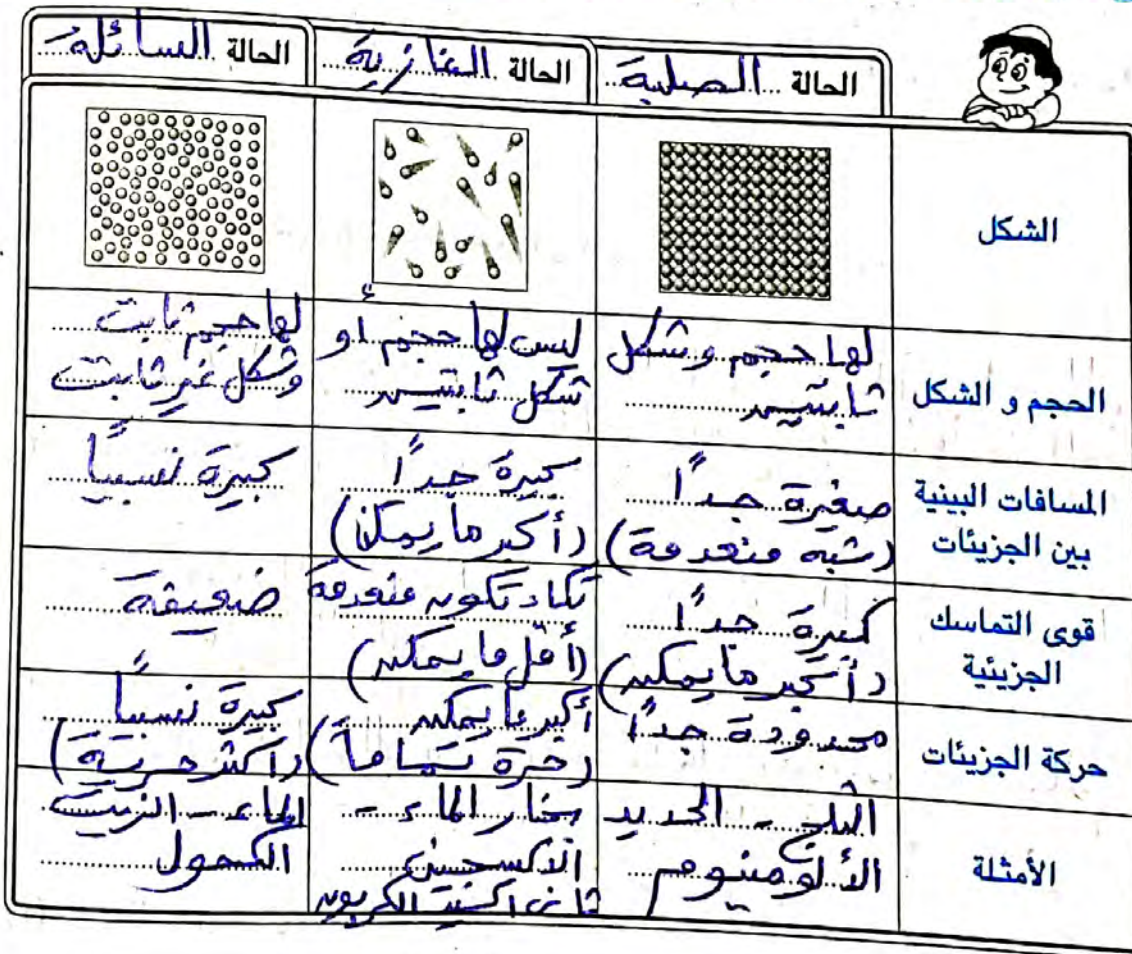 الحالة الصلبة
الحالة الغازية
الحالة السائلة
الشكل
الحجم و الشكل
لها حجم وشكل
ثابتين
ليس لها حجم أو
شكل ثابتين
لها حجم ثابت
وشكل غير ثابت
المسافات البينية
بين الجزيئات
صغيرة جداً
(شبه منعدمة)
كبيرة جداً
(أكبر ما يمكن)
كبيرة نسبياً
قوى التماسك
الجزيئية
كبيرة جداً
(أكبر ما يمكن)
تكاد تكون منعدمة
(أقل ما يمكن)
ضعيفة
حركة الجزيئات
محدودة جداً
أكبر ما يمكن
(حرة تماماً)
كبيرة نسبياً
(أكثر حرية)
الأمثلة
الثلج - الحديد
الألومنيوم
بخار الماء -
الأكسجين
ثانى أكسيد الكربون
الماء - الزيت
الكحول